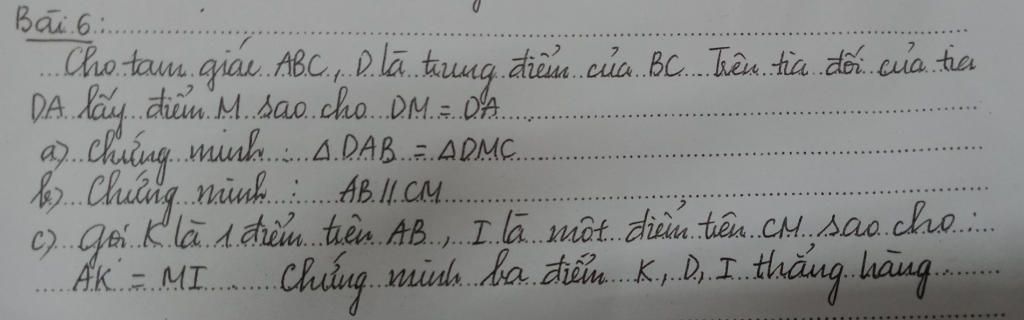 Bài 6:
Cho tam giác ABC, D là trung điểm của BC. Trên tia đối của tia
DA lấy điểm M sao cho DM = DA
a) Chứng minh: △DAB = △DMC
b) Chứng minh: AB // CM
c) Gọi K là 1 điểm trên AB, I là một điểm trên CM sao cho:
AK = MI Chứng minh ba điểm K, D, I thẳng hàng